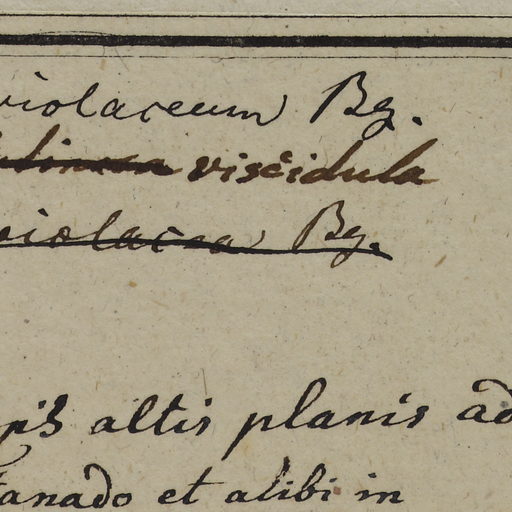 violaceum Bg.
viscidula
violacea Bg.
altis planis ad
tanado et alibi in